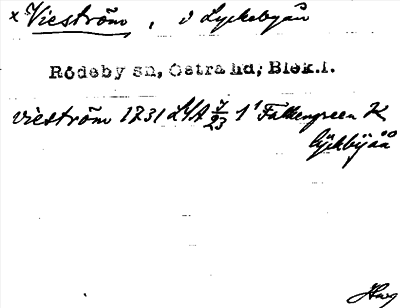 × Vieström, i Lyckebyån
Rödeby sn, Östra hd; Blek.l.
vieström 1231 LSA 7/23 1¹ Falkengreen K
lÿckbÿåå